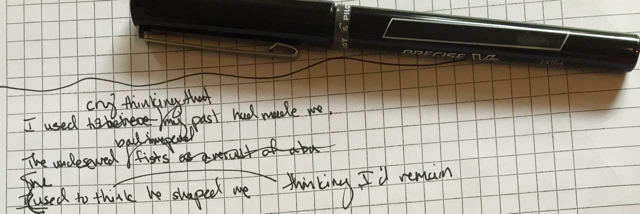 PILOT
PRECISE V7
EXTRA
cry thinking that
I used to believe my past had made me.
The undeserved fists as a result of
The
I used to think he shaped me thinking I'd remain